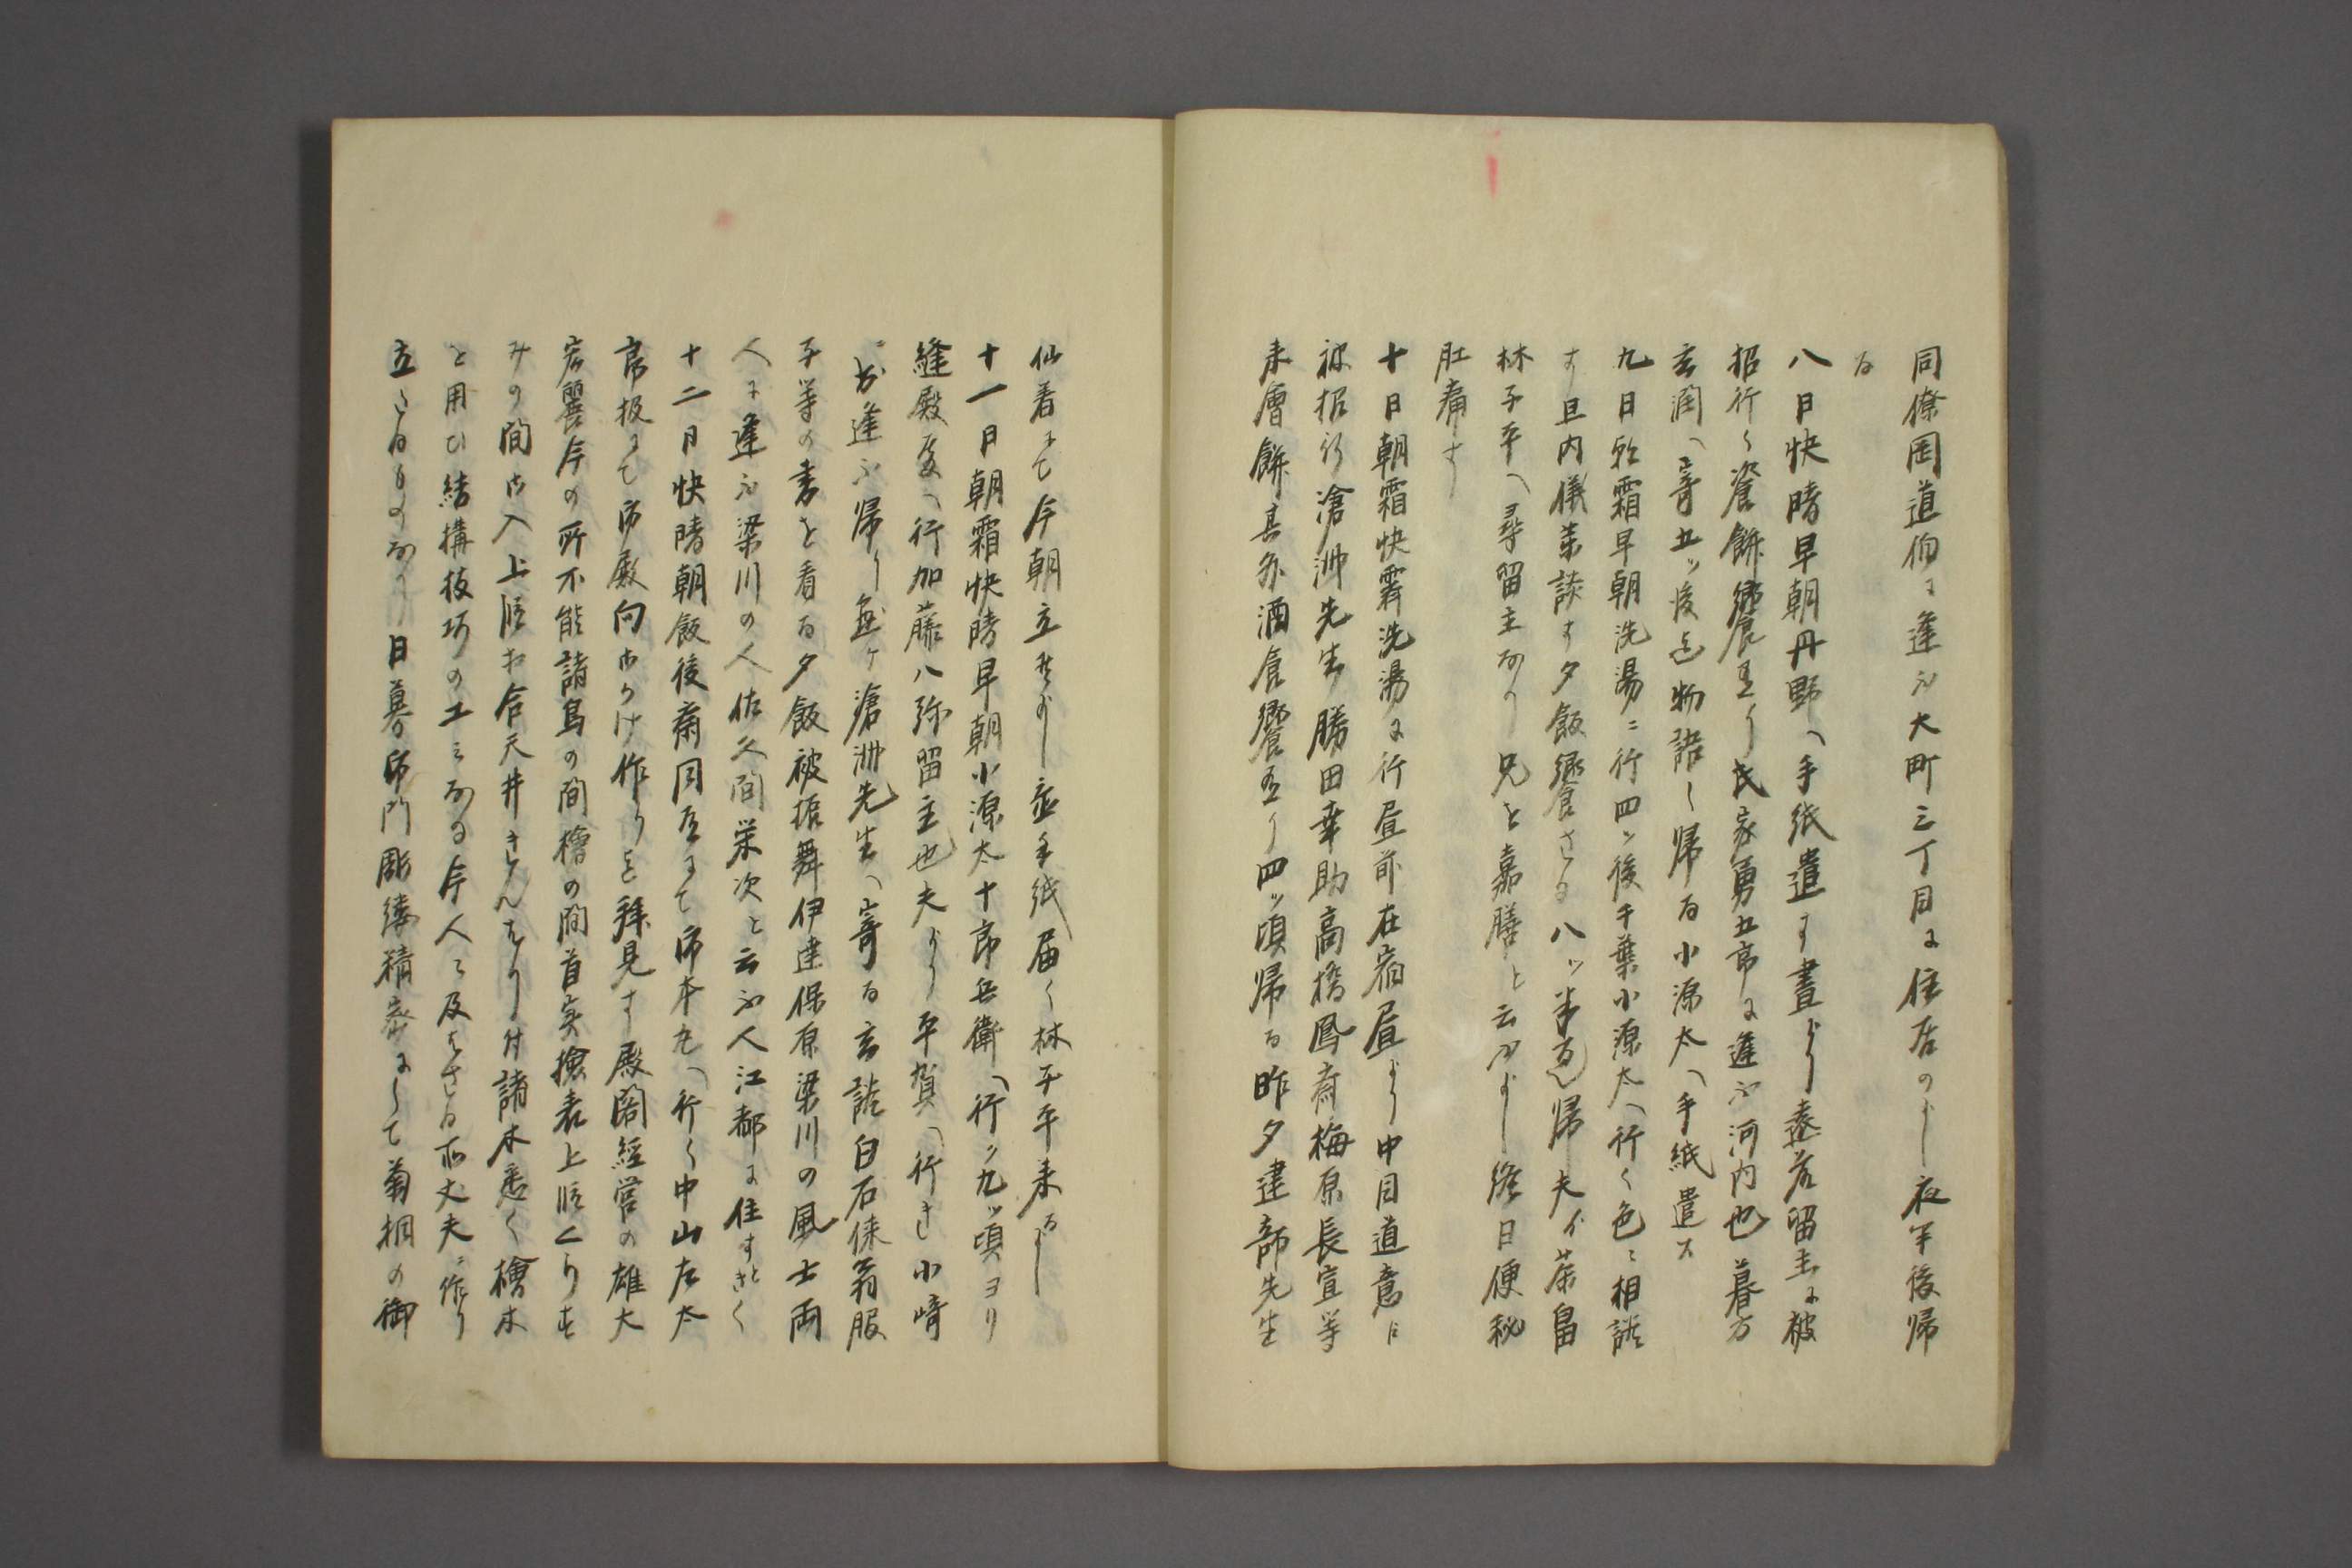 同僚岡道伯に逢ふ大町三丁目に住居のよし夜半後帰
る
八日快晴早朝丹野へ手紙遣す昼より遠藤留主に被
招行く資餅饗有り氏家勇五郎に逢ふ河内也暮方
玄潤へ寄五ッ後迄物語し帰る小源太へ手紙遣ス
九日乾霜早朝洗湯ニ行四ッ後千葉小源太へ行く色々相談
す且内儀葉談す夕飯饗さる八ッ半過帰夫より茶畠
林子平へ尋留主なり兄を嘉膳と云ふよし終日便秘
肚痛す
十日朝霜快霽洗湯に行昼前在宿昼より中目道意に
被招行滄洲先生勝田幸助高橋鳳斎梅原長宣等
来會餅其外酒食饗有り四ッ頃帰る昨夕建部先生
仙着にて今朝立のよし並手紙届く林子平来るよし
十一日朝霜快晴早朝小源太十郎兵衛へ行ク九ッ頃ヨリ
縫殿殿へ行加藤八弥留主也夫より平賀へ行き小崎
ニが逢ふ帰り無ヶ滄洲先生へ寄る玄談白石侯翁服
子等の書を看る夕飯被振舞伊達保原梁川の風士両
人に逢ふ梁川の人佐久間栄次と云ふ人江都に住すとく
十二日快晴朝飯後斎同道にて御本丸へ行く中山左太
高扱にて御殿向向うけ作りを拝見す殿閣経営の雄大
宏麗今の所不能諸鳥の間檜の間首実撿表上段くりも
みの間御入上段お合天井きんもより付諸木悉く檜木
を用ひ結構技巧の工ミなる今人之及はさる而丈夫ニ作り
立さるものなり日暮御門彫鏤積密にして菊桐の御